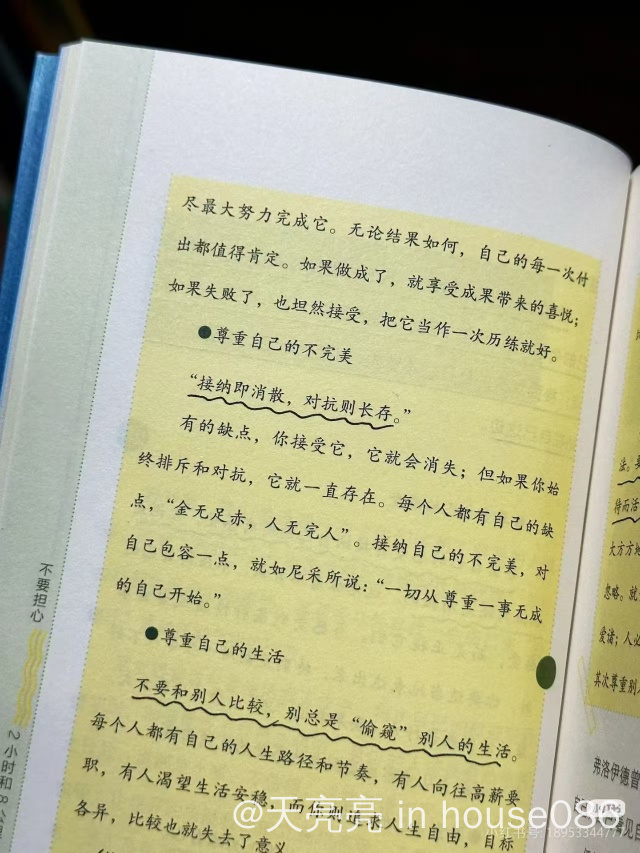 尽最大努力完成它。无论结果如何，自己的每一次付
出都值得肯定。如果做成了，就享受成果带来的喜悦；
如果失败了，也坦然接受，把它当作一次历练就好。
●尊重自己的不完美
“接纳即消散，对抗则长存。”
有的缺点，你接受它，它就会消失；但如果你始
终排斥和对抗，它就一直存在。每个人都有自己的缺
点，“金无足赤，人无完人”。接纳自己的不完美，对
自己包容一点，就如尼采所说：“一切从尊重一事无成
的自己开始。”
●尊重自己的生活
不要和别人比较，别总是“偷窥”别人的生活。
每个人都有自己的人生路径和节奏，有人向往高薪要
职，有人渴望生活安稳，而你则追求人生自由，目标
各异，比较也就失去了意义
不要担心
2小时和8公里
法。
待而活
大方方地
忽略。就
爱诸；人必
其次尊重别人
弗洛伊德曾
见自
@天亮亮 in house086
小红书号：1895334477